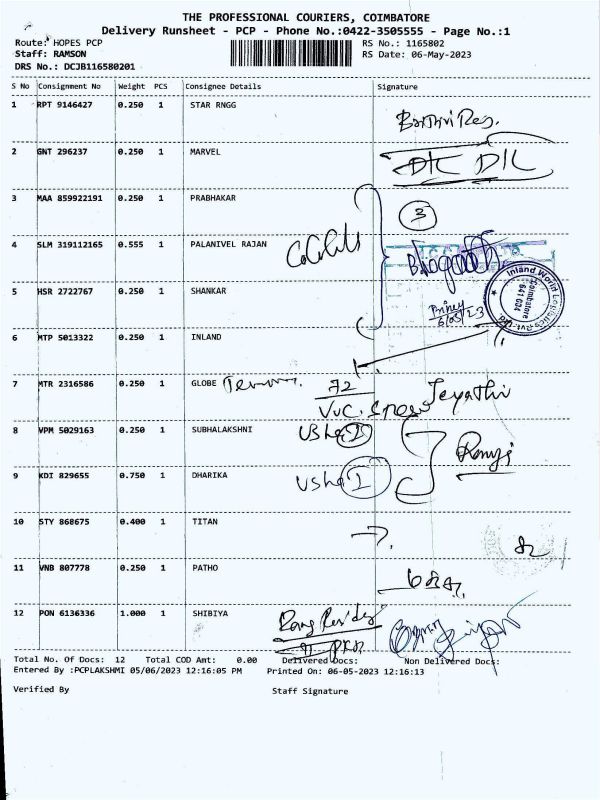 THE PROFESSIONAL COURIERS, COIMBATORE
Delivery Runsheet - PCP - Phone No.:0422-3505555 - Page No.:1
Route: HOPES PCP
RS No.: 1165802
Staff: RAMSON
RS Date: 06-May-2023
DRS No.: DCJB116580201
S No Consignment No Weight PCS Consignee Details Signature
1 RPT 9146427 0.250 1 STAR RNGG
2 GNT 296237 0.250 1 MARVEL
3 MAA 859922191 0.250 1 PRABHAKAR
3
4 SLM 319112165 0.555 1 PALANIVEL RAJAN
5 HSR 2722767 0.250 1 SHANKAR
Inland World Logistics Pvt. Ltd.
Coimbatore
641 004
6/05/23
6 MTP 5013322 0.250 1 INLAND
7 MTR 2316586 0.250 1 GLOBE
72
8 VPM 5029163 0.250 1 SUBHALAKSHNI
Usha I
9 KDI 829655 0.750 1 DHARIKA
Usha I
10 STY 868675 0.400 1 TITAN
11 VNB 807778 0.250 1 PATHO
12 PON 6136336 1.000 1 SHIBIYA
Total No. Of Docs: 12 Total COD Amt: 0.00 Delivered Docs: Non Delivered Docs:
Entered By :PCPLAKSHMI 05/06/2023 12:16:05 PM Printed On: 06-05-2023 12:16:13
Verified By Staff Signature